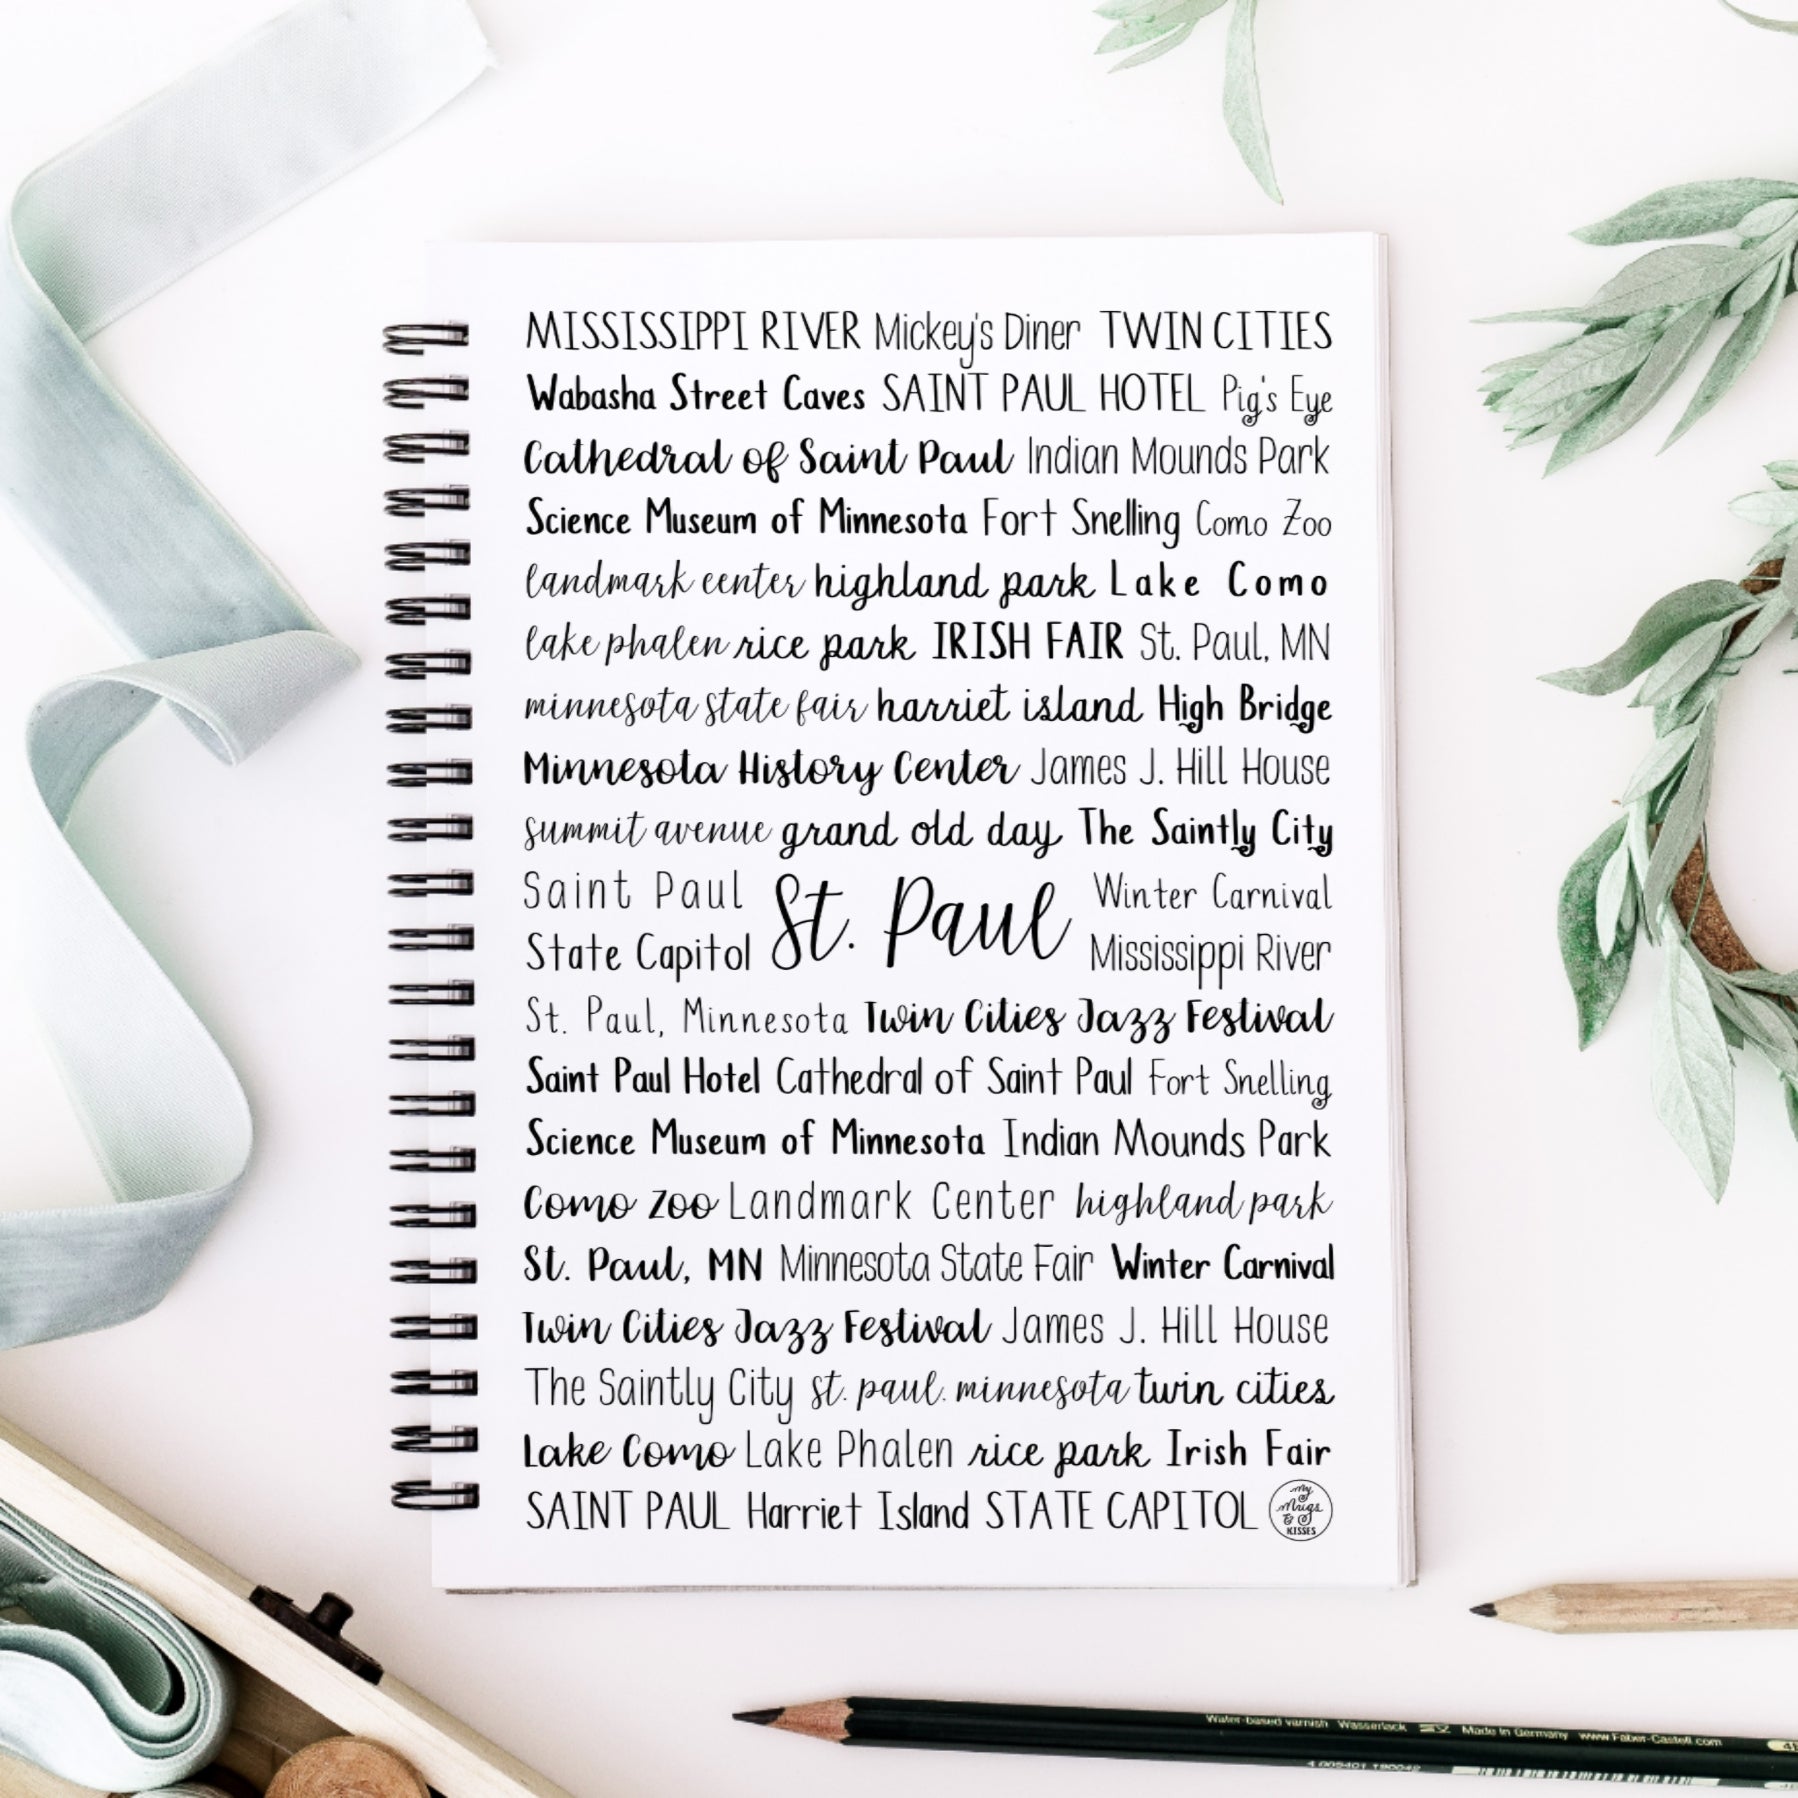 MISSISSIPPI RIVER Mickey's Diner TWIN CITIES
Wabasha Street Caves SAINT PAUL HOTEL Pig's Eye
Cathedral of Saint Paul Indian Mounds Park
Science Museum of Minnesota Fort Snelling Como Zoo
landmark center highland park Lake Como
lake phalen rice park IRISH FAIR St. Paul, MN
minnesota state fair harriet island High Bridge
Minnesota History Center James J. Hill House
summit avenue grand old day The Saintly City
Saint Paul St. Paul Winter Carnival
State Capitol Mississippi River
St. Paul, Minnesota Twin Cities Jazz Festival
Saint Paul Hotel Cathedral of Saint Paul Fort Snelling
Science Museum of Minnesota Indian Mounds Park
Como Zoo Landmark Center highland park
St. Paul, MN Minnesota State Fair Winter Carnival
Twin Cities Jazz Festival James J. Hill House
The Saintly City st. paul. minnesota twin cities
Lake Como Lake Phalen rice park Irish Fair
SAINT PAUL Harriet Island STATE CAPITOL
My
Mugs
&
KISSES
Water-based varnish Wasserlack Made in Germany www.Faber-Castell.com
4 005401 190042